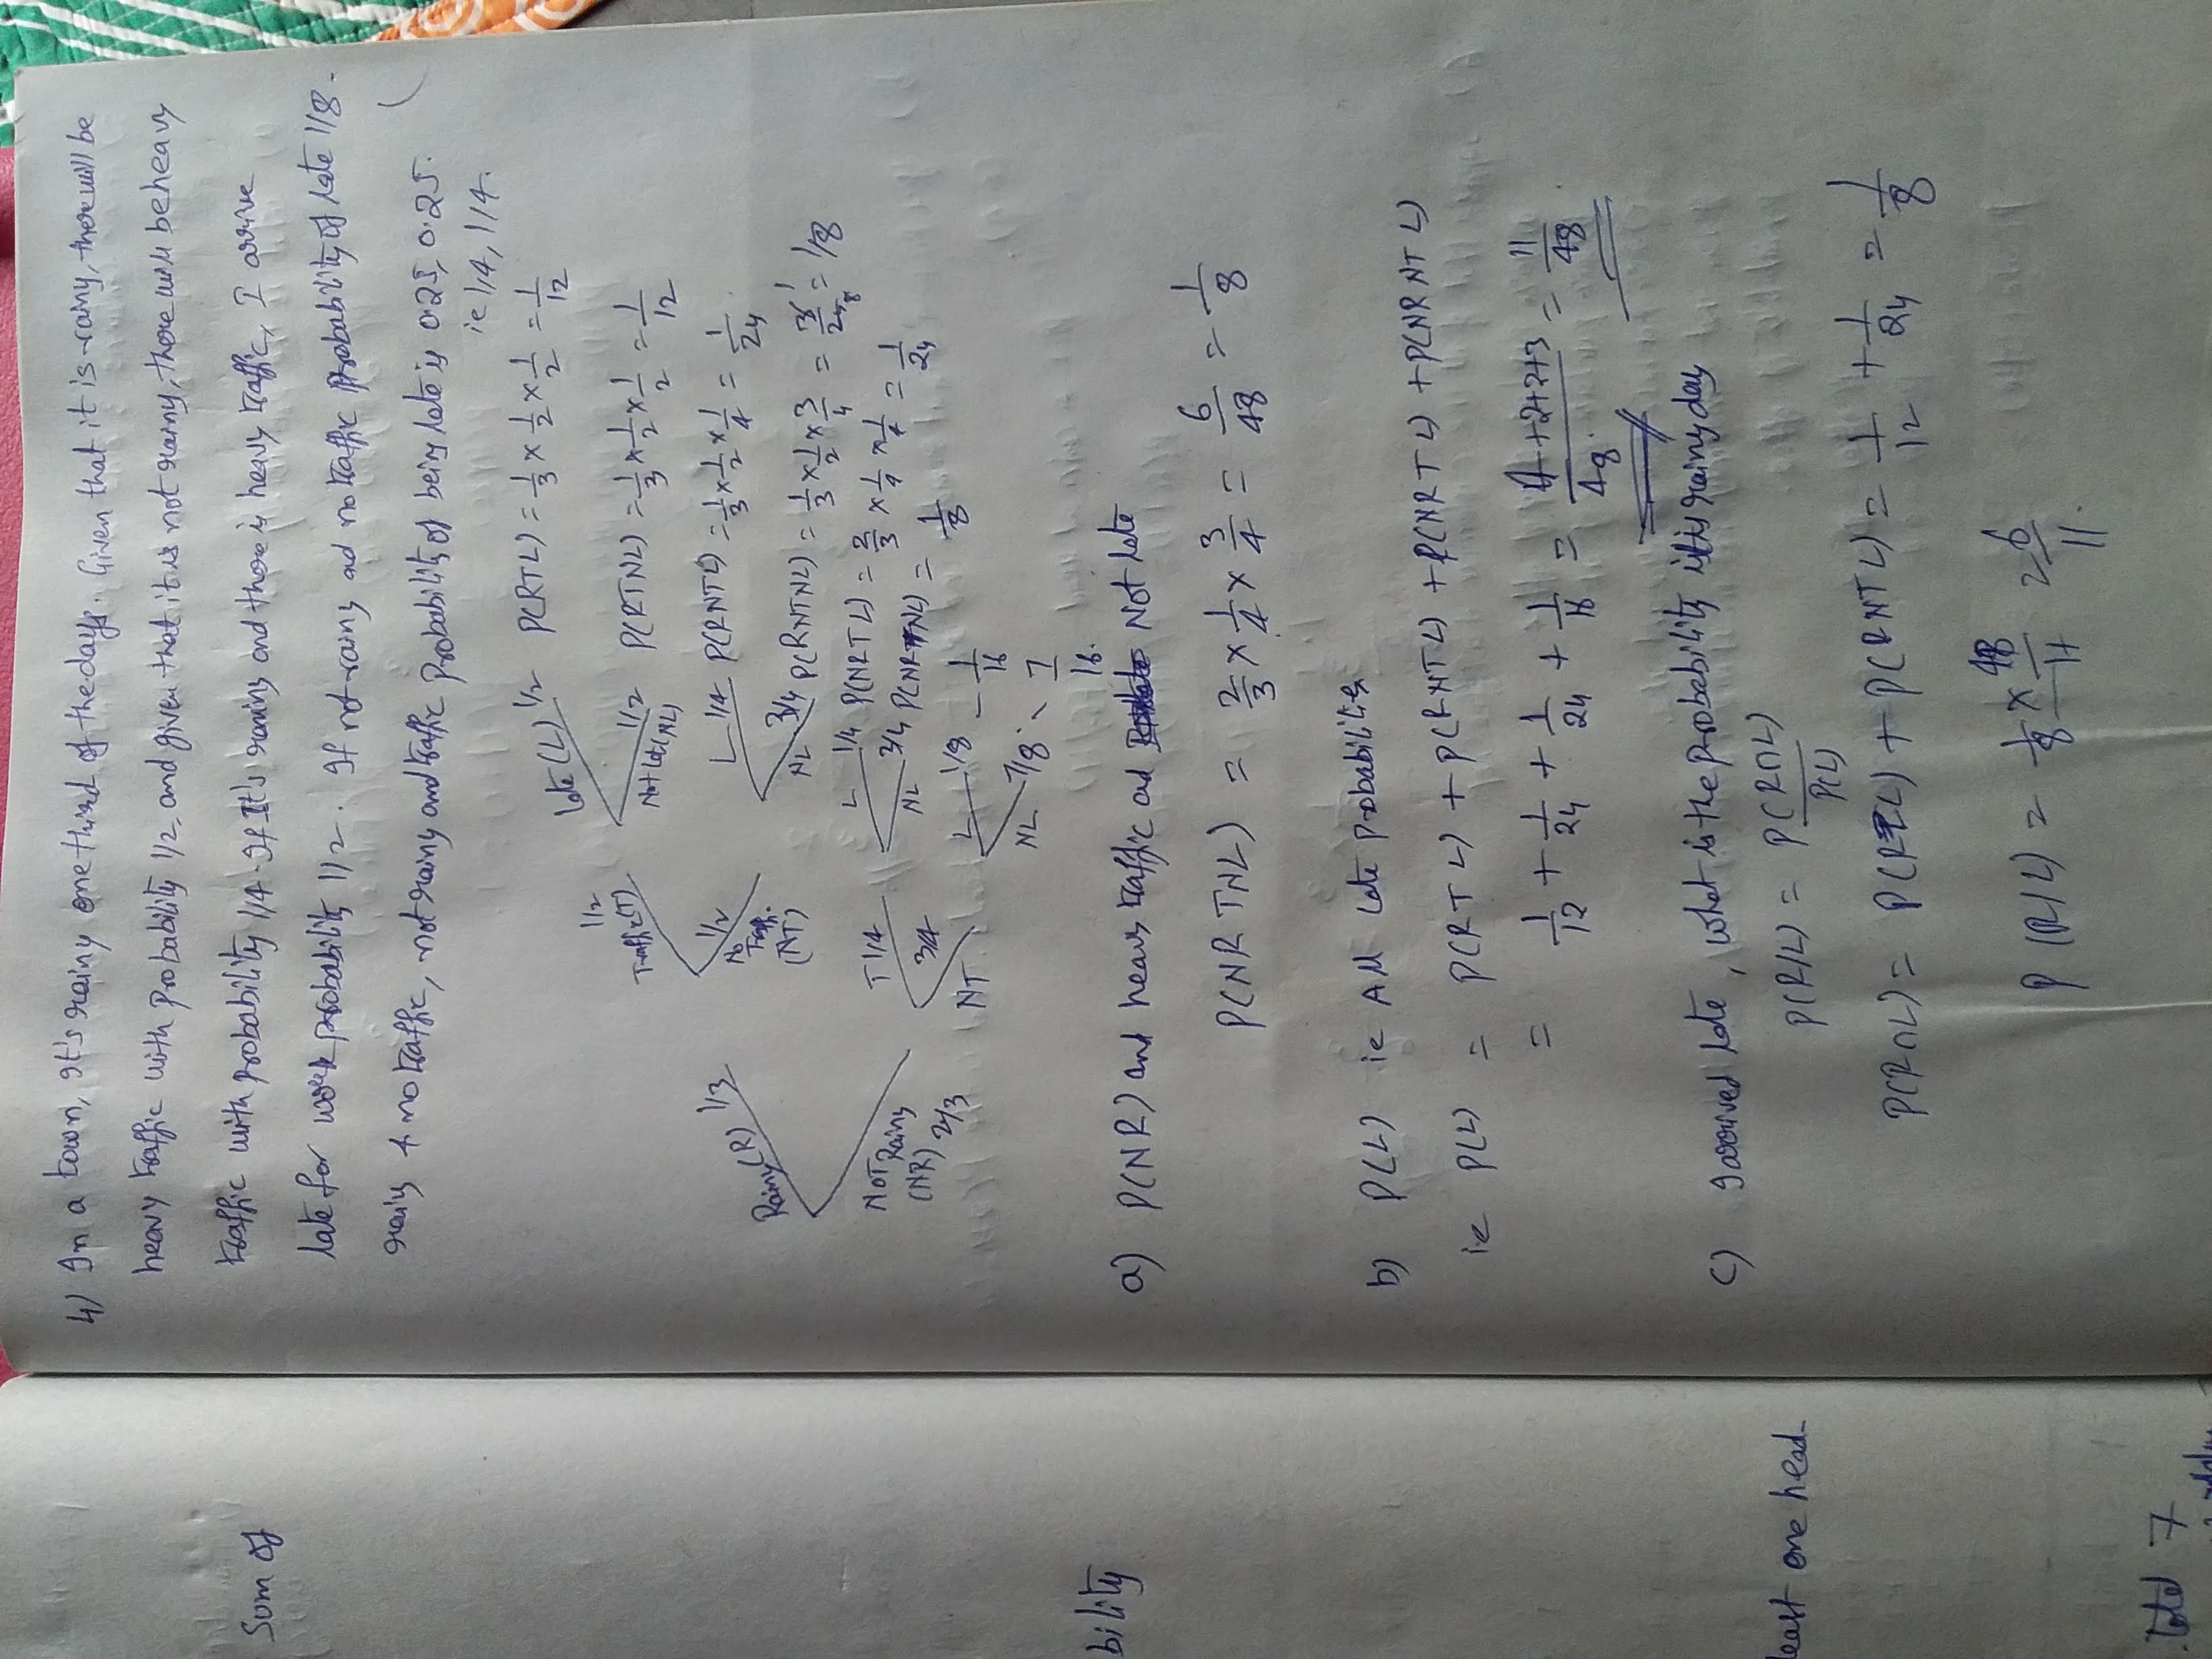 Sum of
bility
least one head
total 7
4) In a town, It's rainy one third of the days. Given that it is rainy, there will be
heavy traffic with probability 1/2, and given that it is not rainy, there will be heavy
traffic with probability 1/4. If It's raining and there is heavy traffic, I arrive
late for work probability 1/2. If not rainy ad no traffic probability of late 1/8.
rainy & no traffic, not rainy and traffic probability of being late is 0.25, 0.25.
ie 1/4, 1/4.
Late (L) 1/2 P(RTL) = 1/3 × 1/2 × 1/2 = 1/12
1/2
Traffic (T)
Not Late (NL) 1/2 P(RTNL) = 1/3 × 1/2 × 1/2 = 1/12
Rainy (R) 1/3
1/2
No
Traffi.
(NT)
L 1/4 P(RNTL) = 1/3 × 1/2 × 1/4 = 1/24
NL 3/4 P(RNTNL) = 1/3 × 1/2 × 3/4 = 3/24 = 1/8
NOT Rainy
(NR) 2/3
T 1/4
L 1/4 P(NRTL) = 2/3 × 1/4 × 1/4 = 1/24
NL 3/4 P(NRTNL) = 1/8
3/4
NT
L 1/8 - 1/16
NL 7/8 - 7/16.
a) P(NR) and heavy traffic ad Not late
P(NR TNL) = 2/3 × 1/4 × 3/4 = 6/48 = 1/8
b) P(L) ie All late probabilities
ie P(L) = P(RTL) + P(RNTL) + P(NRTL) + P(NRNTL)
= 1/12 + 1/24 + 1/24 + 1/16 = 4+2+2+3/48. = 11/48.
c) I arrived late, what is the probability it is rainy day
P(R/L) = P(R∩L)/P(L)
P(R∩L) = P(RTL) + P(RNTL) = 1/12 + 1/24 = 1/8
P(R/L) = 1/8 × 48/11 = 6/11.